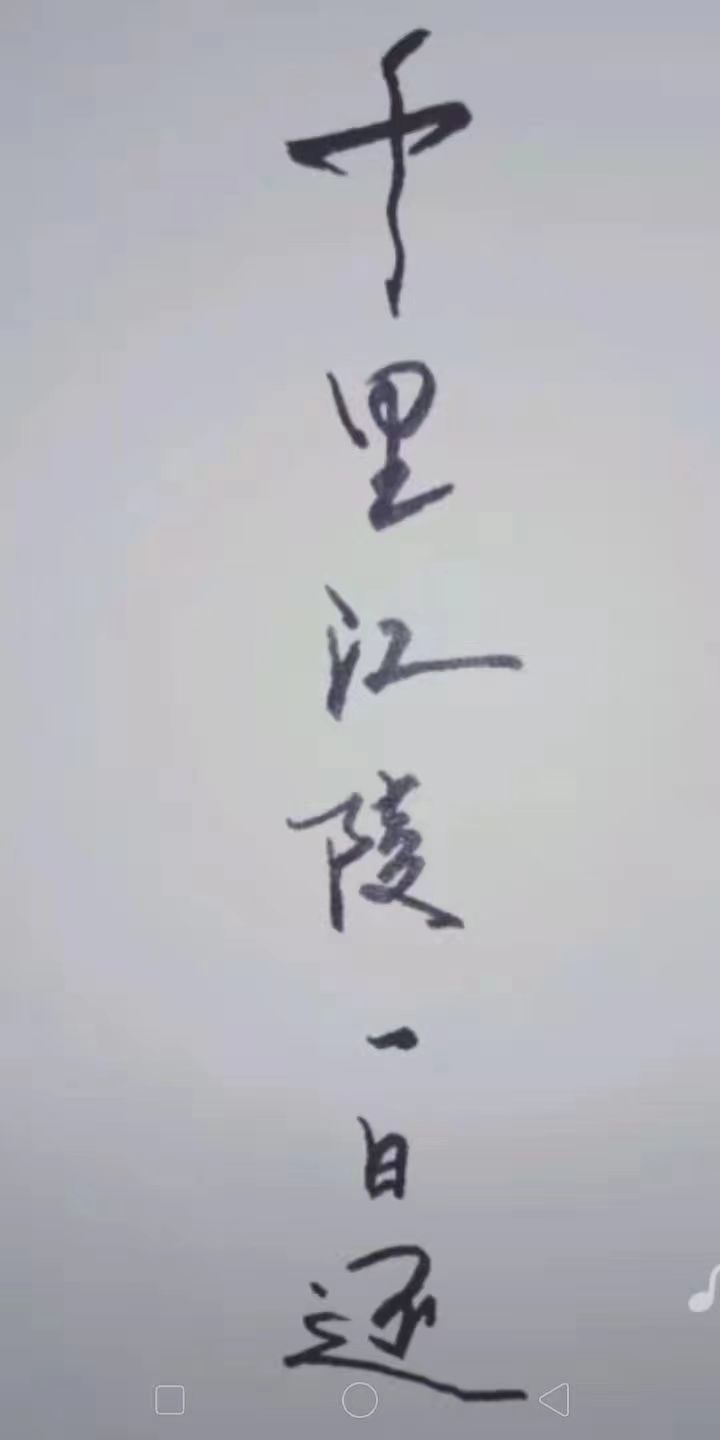 千里江陵一日还